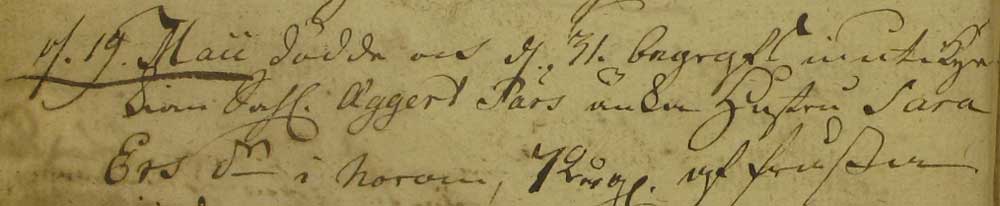 d. 19. Maii dödde och d. 31. begrofs inuti Kyr
kian Sahl. Æggert Pärs änka Hustru Sara
Ers dr i Norom, 78 af frussa